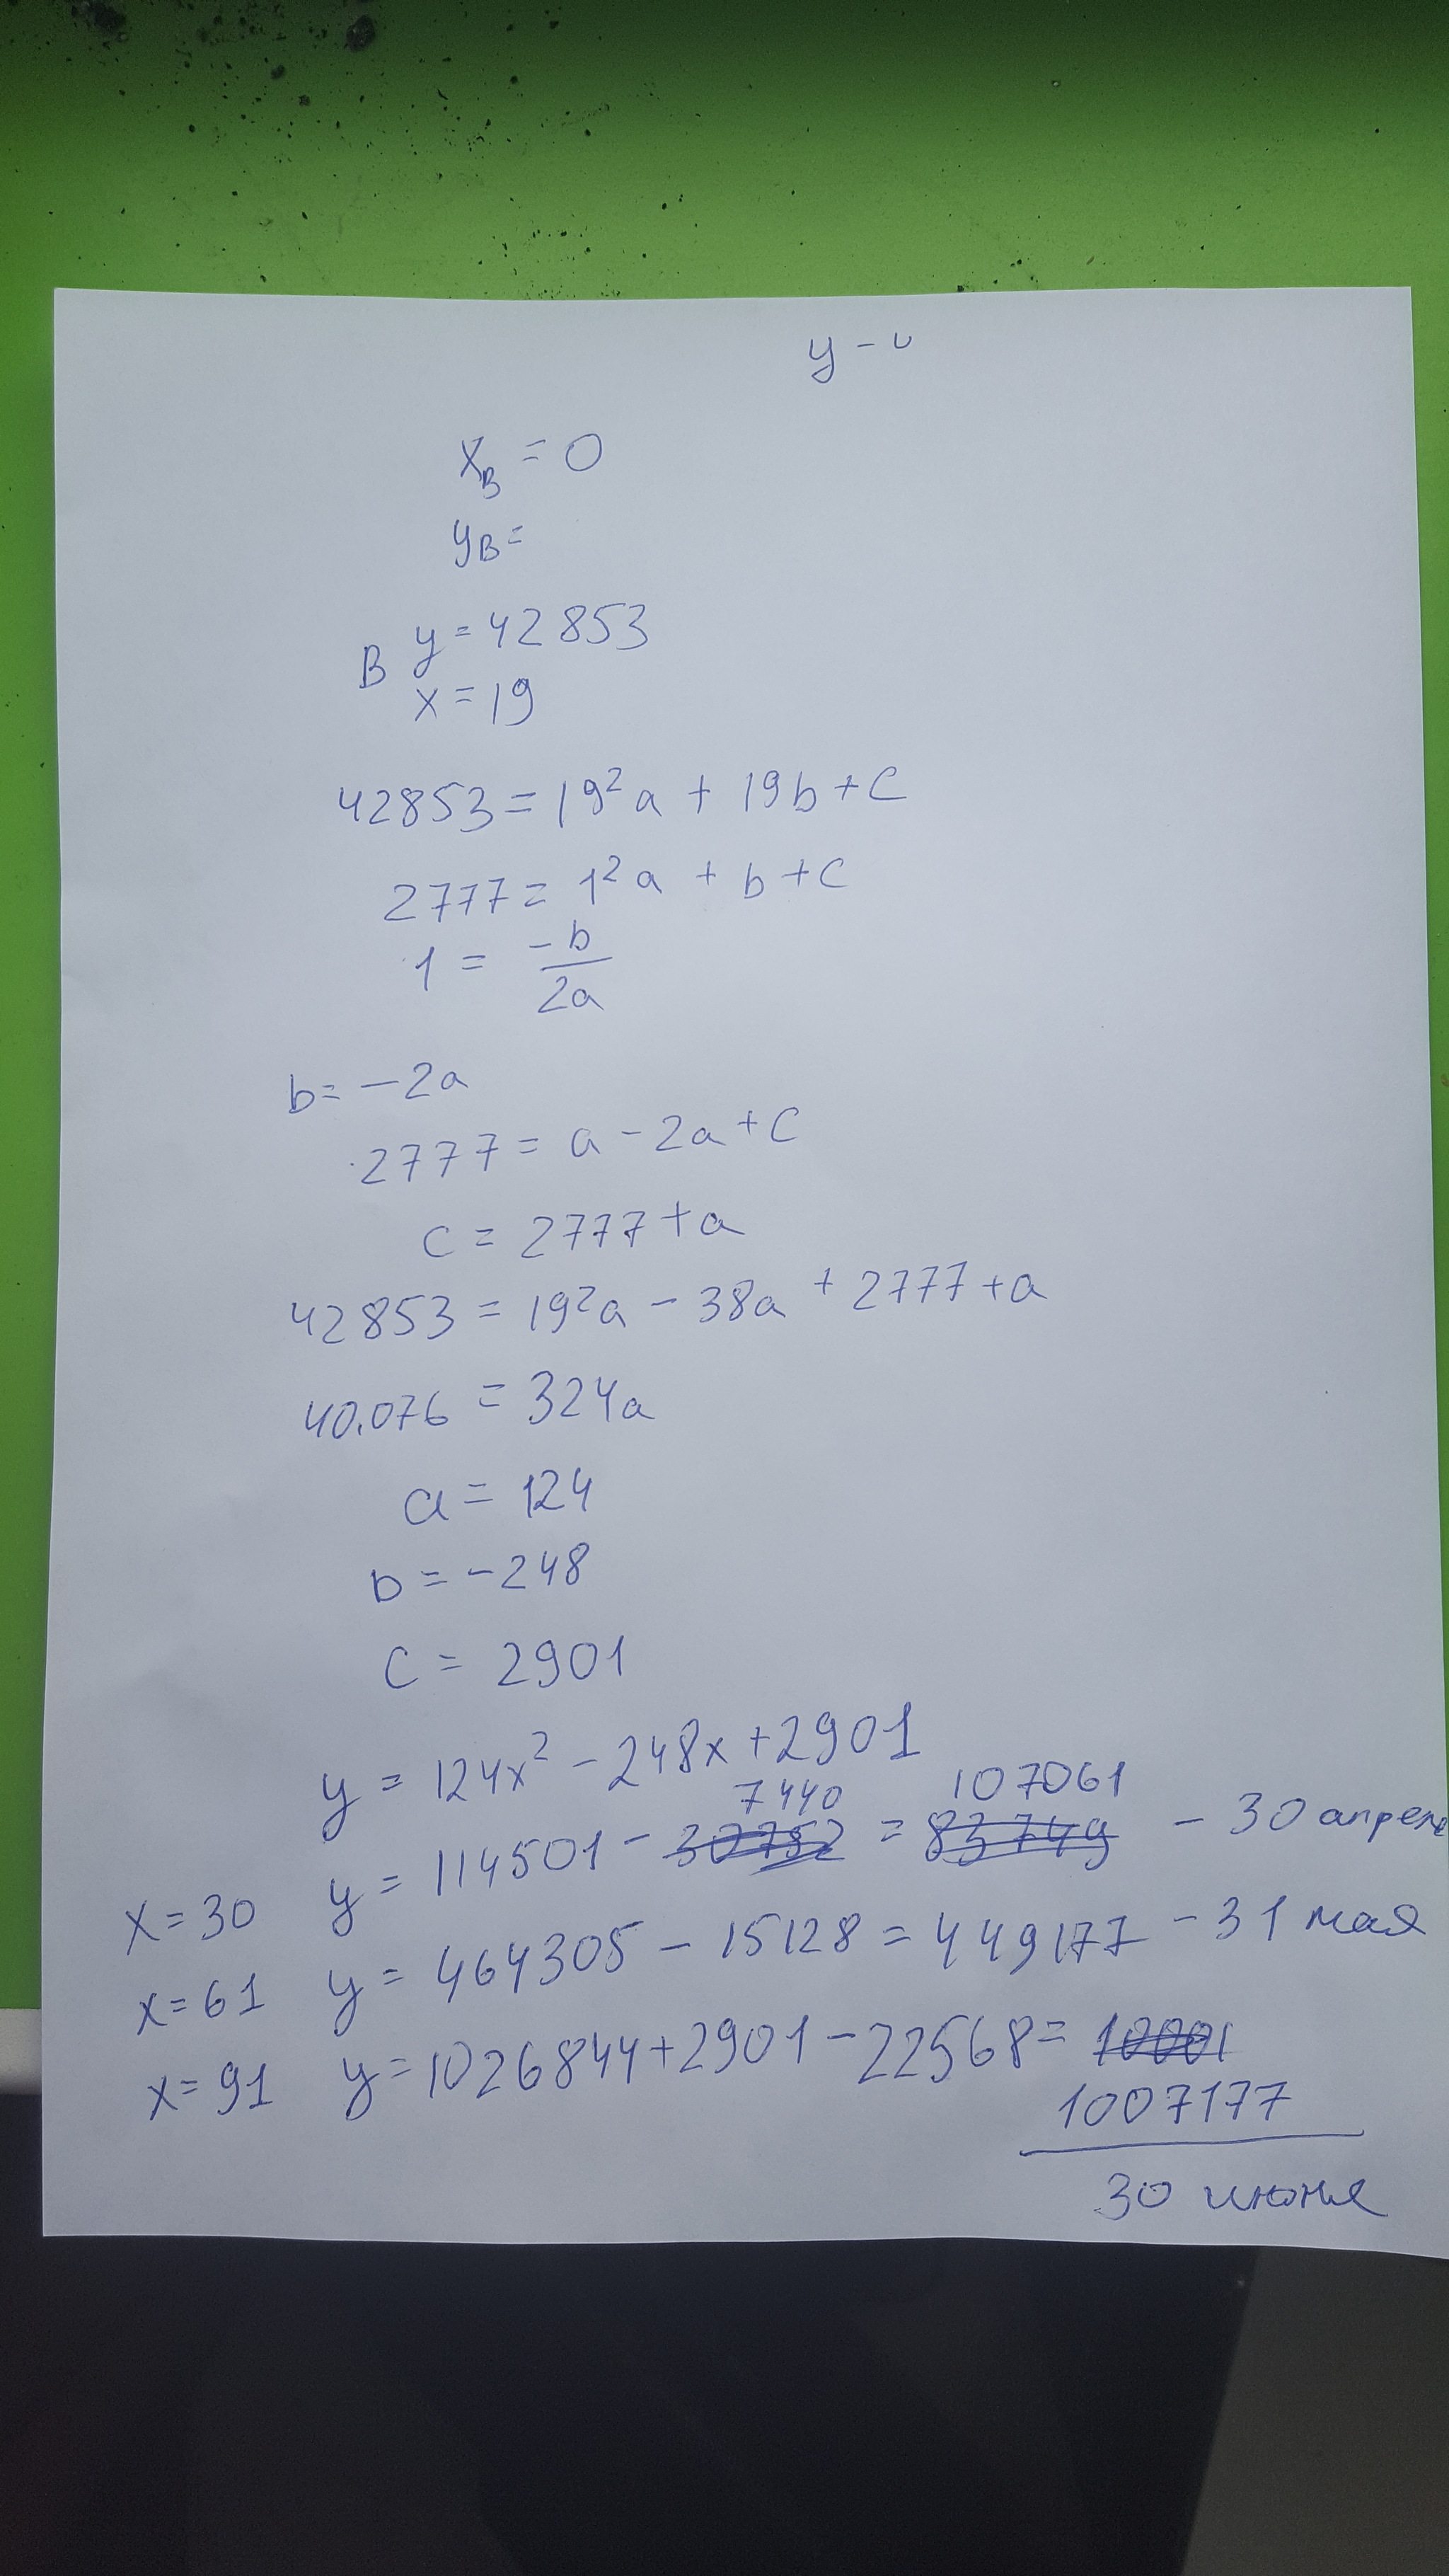 y -
x_B = 0
y_B =
B y = 42853
x = 19
42853 = 19²a + 19b + c
2777 = 1²a + b + c
1 = -b/2a
b = -2a
2777 = a - 2a + c
c = 2777 + a
42853 = 19²a - 38a + 2777 + a
40.076 = 324a
a = 124
b = -248
c = 2901
y = 124x² - 248x + 2901
7440 107061
x = 30 y = 114501 - 30752 = 83749 - 30 апреля
x = 61 y = 464305 - 15128 = 449177 - 31 мая
x = 91 y = 1026844 + 2901 - 22568 = 10001
1007177
30 июня